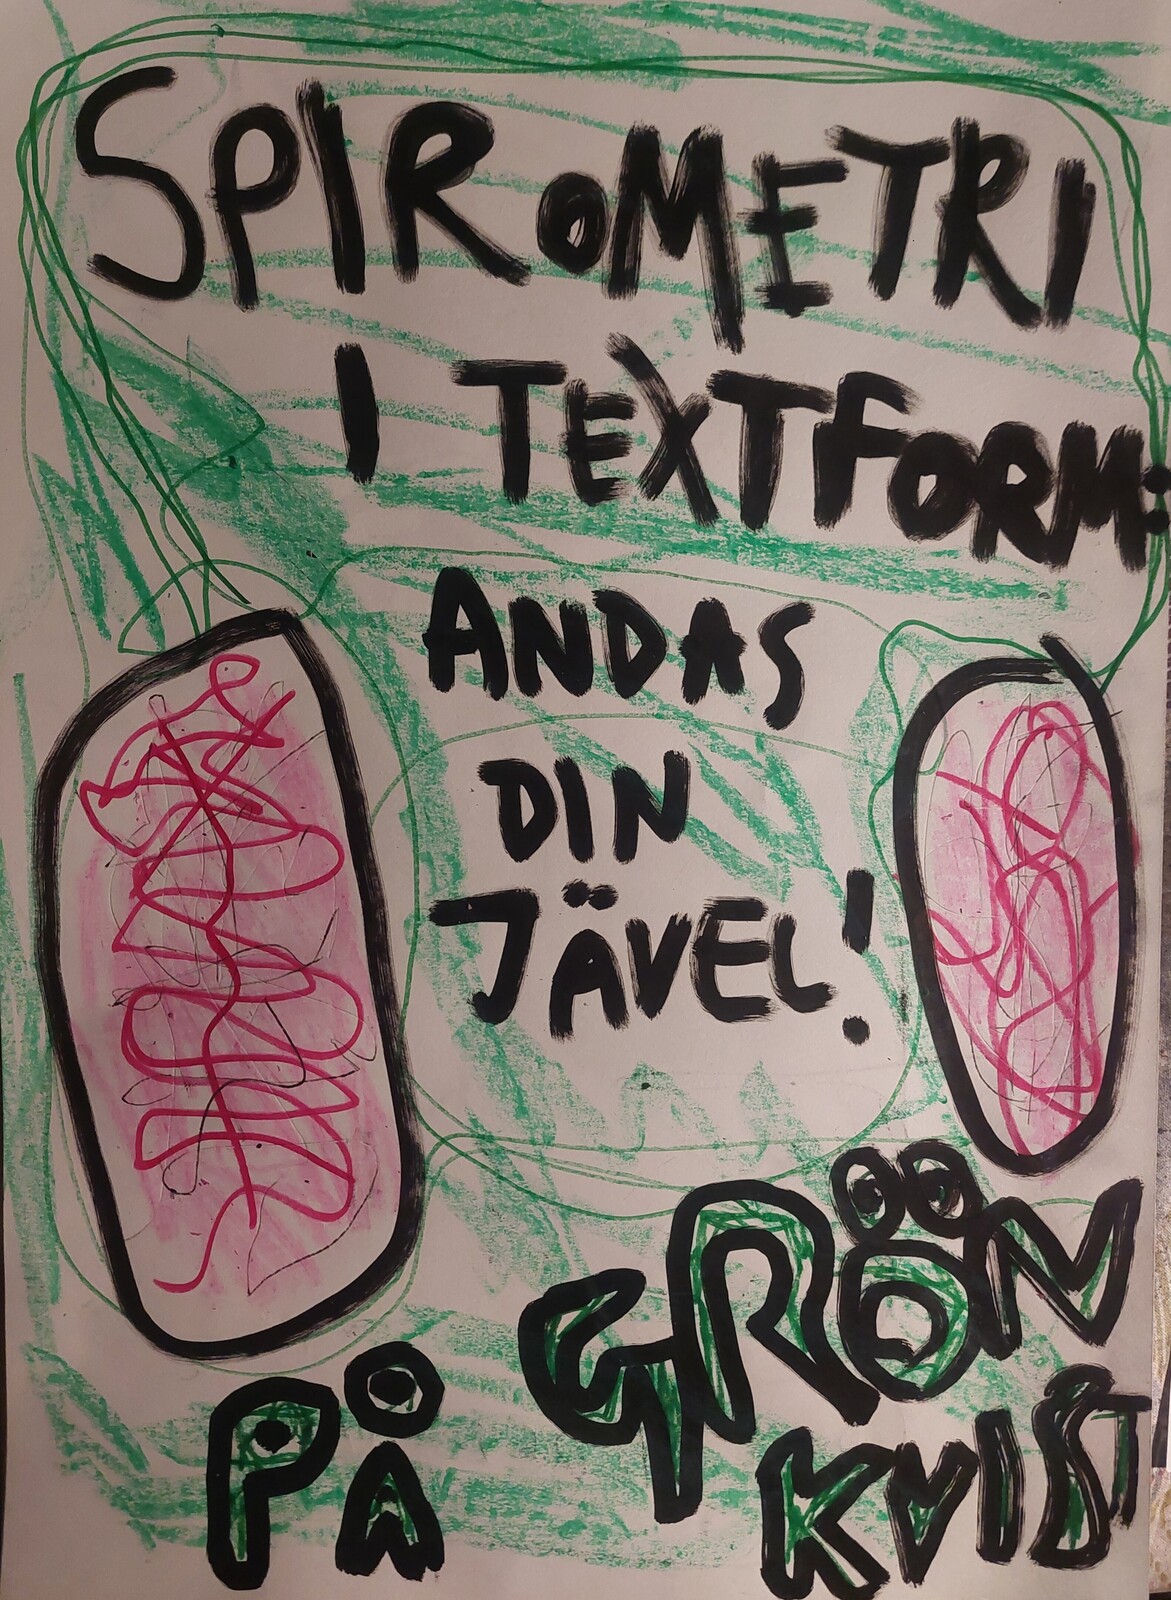 SPIROMETRI
I TEXTFORM:
ANDAS
DIN
JÄVEL!
PÅ GRÖN
KVIST